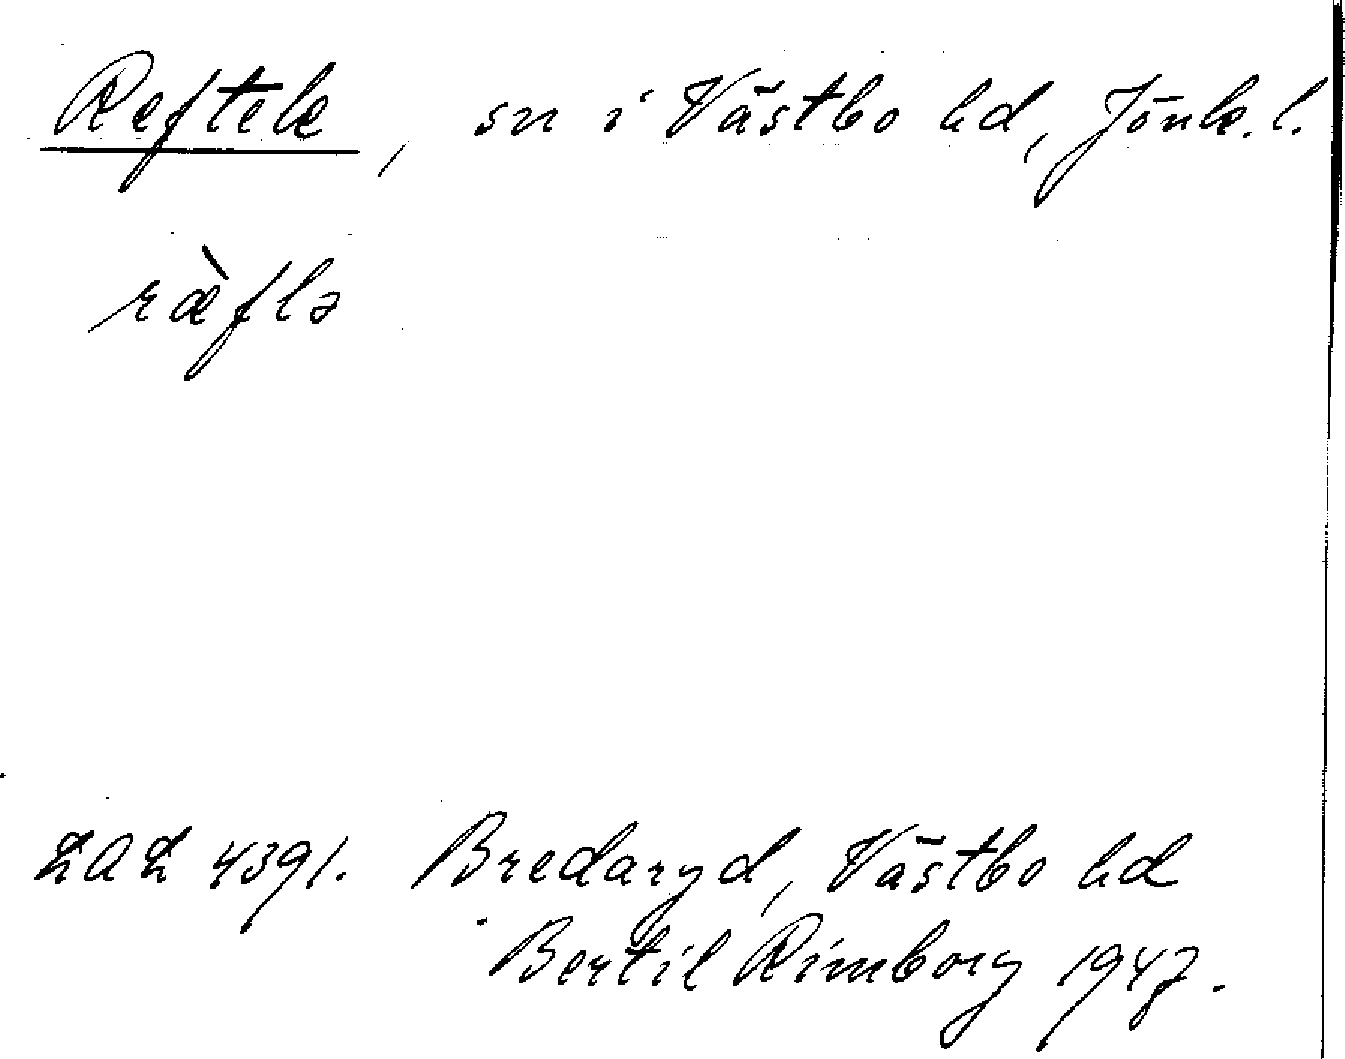 Reftele, sn i Västbo hd, Jönk. l.
ræ̀flə
LAL 4391. Bredaryd, Västbo hd
Bertil Rimborg 1947.